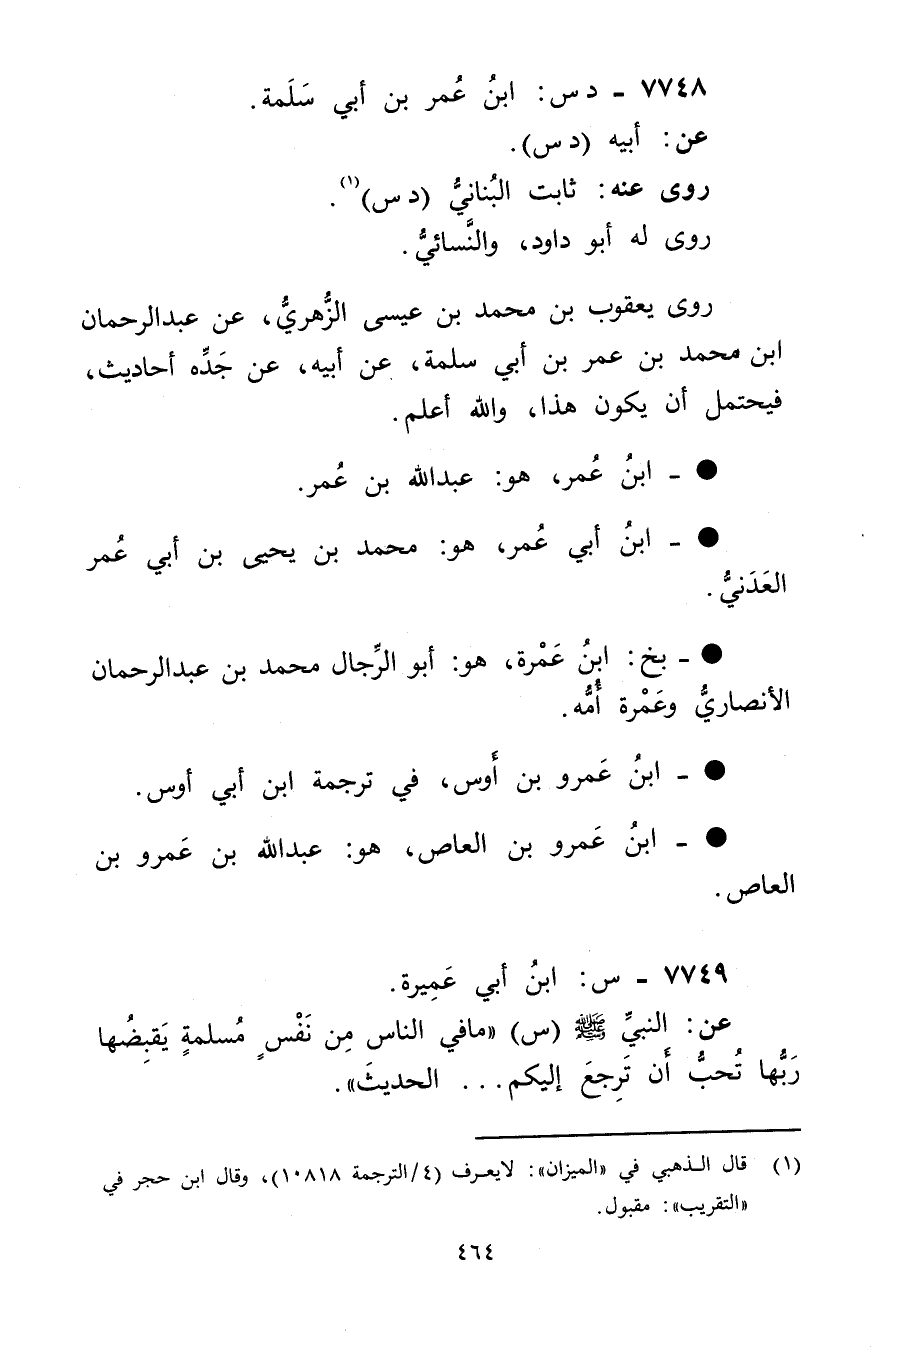 ٧٧٤٨ - د س: ابنُ عُمر بن أبي سَلَمة.
عن: أبيه (د س).
روى عنه: ثابت البُنانيُّ (د س)(١).
روى له أبو داود، والنَّسائيُّ.
روى يعقوب بن محمد بن عيسى الزُّهريُّ، عن عبدالرحمان
ابن محمد بن عمر بن أبي سلمة، عن أبيه، عن جَدِّه أحاديث،
فيحتمل أن يكون هذا، والله أعلم.
● - ابنُ عُمر، هو: عبدالله بن عُمر.
● - ابنُ أبي عُمر، هو: محمد بن يحيى بن أبي عُمر
العَدَنيُّ.
● - بخ: ابنُ عَمْرة، هو: أبو الرِّجال محمد بن عبدالرحمان
الأنصاريُّ وعَمْرة أُمُّه.
● - ابنُ عَمرو بن أَوس، في ترجمة ابن أبي أوس.
● - ابنُ عَمرو بن العاص، هو: عبدالله بن عَمرو بن
العاص.
٧٧٤٩ - س: ابنُ أبي عَمِيرة.
عن: النبيِّ ﷺ (س) «مافي الناس مِن نَفْسٍ مُسلمةٍ يَقبِضُها
رَبُّها تُحبُّ أَن تَرِجعَ إليكم... الحديثَ».
(١) قال الذهبي في «الميزان»: لايعرف (٤/الترجمة ١٠٨١٨)، وقال ابن حجر في
«التقريب»: مقبول.
٤٦٤